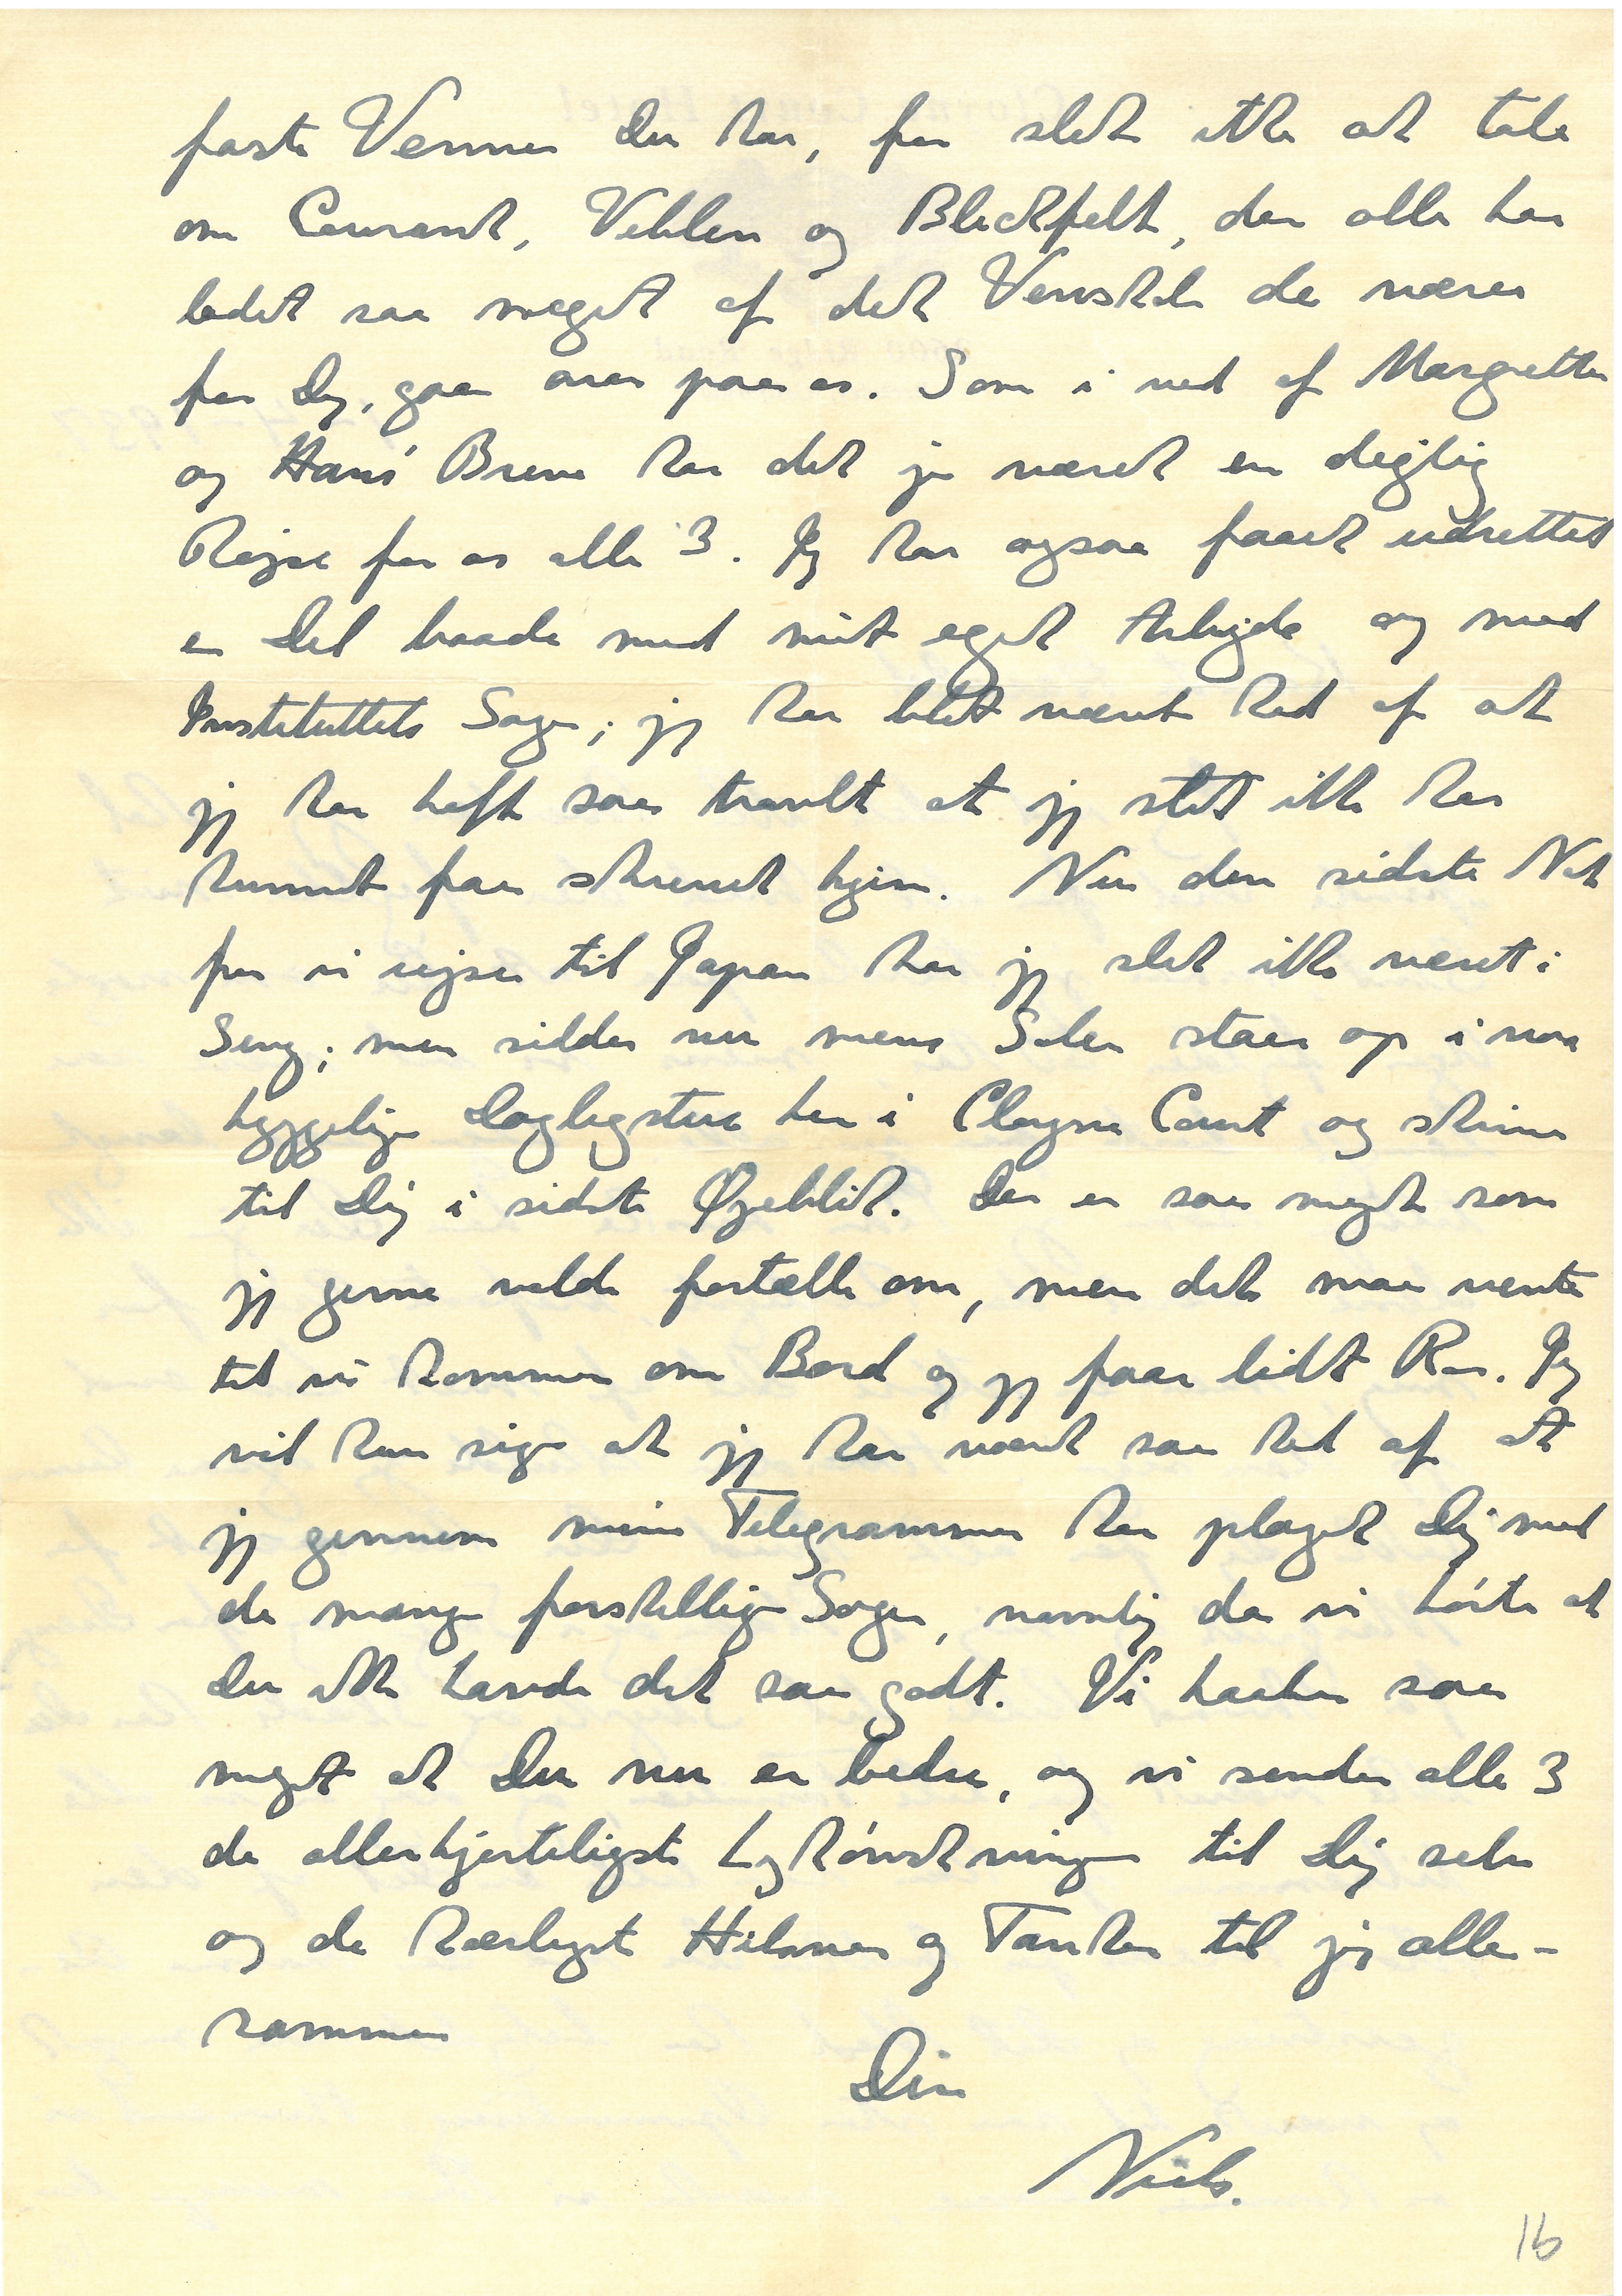 faste Venner Du har, for slet ikke at tale
om Courant, Veblen og Blichfelt, der alle har
ladet saa meget af det Venskab de nærer
for Dig, gaa over paa os. Som i ved af Margrethes
og Hans' Breve har det jo været en dejlig
Rejse for os alle 3. Jeg har ogsaa faaet udrettet
en Del baade med mit eget Arbejde og med
Instituttets Sager; jeg har blot været ked af at
jeg har haft saa travlt at jeg slet ikke har
kunnet faa skrevet hjem. Nu den sidste Nat
før vi rejser til Japan har jeg slet ikke været i
Seng; men sidder nu mens Solen staar op i vor
hyggelige Dagligstue her i Cloyne Court og skriver
til Dig i sidste Øjeblik. Der er saa meget som
jeg gerne vilde fortælle om, men det maa vente
til vi kommer om Bord og jeg faar lidt Ro. Jeg
vil kun sige at jeg har været saa ked af at
jeg gennem mine Telegrammer har plaget Dig med
de mange forskellige Sager, navnlig da vi hørte at
Du ikke havde det saa godt. Vi haaber saa
meget at Du nu er bedre, og vi sender alle 3
de allerhjerteligste Lykønskninger til Dig selv
og de kærligste Hilsner og Tanker til jer alle-
sammen
Din
Niels.
16